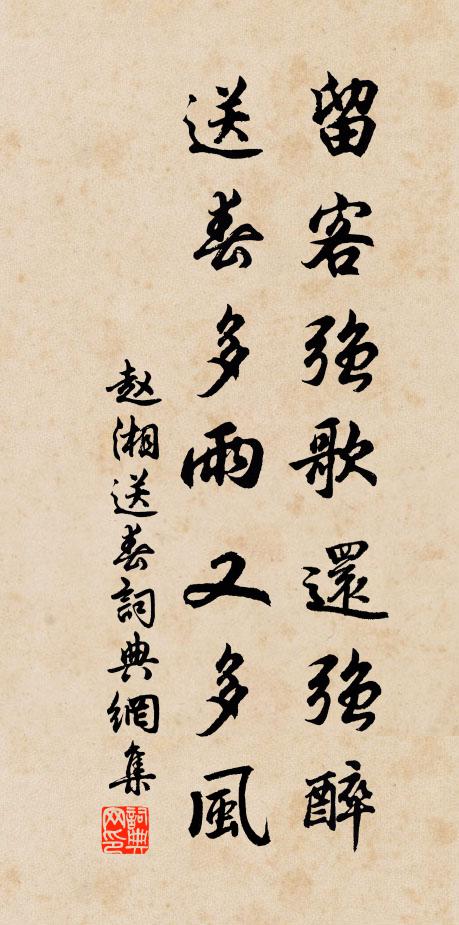 留客強歌還強醉
送春多雨又多風
赵湘送春詞典網集
詞典網印